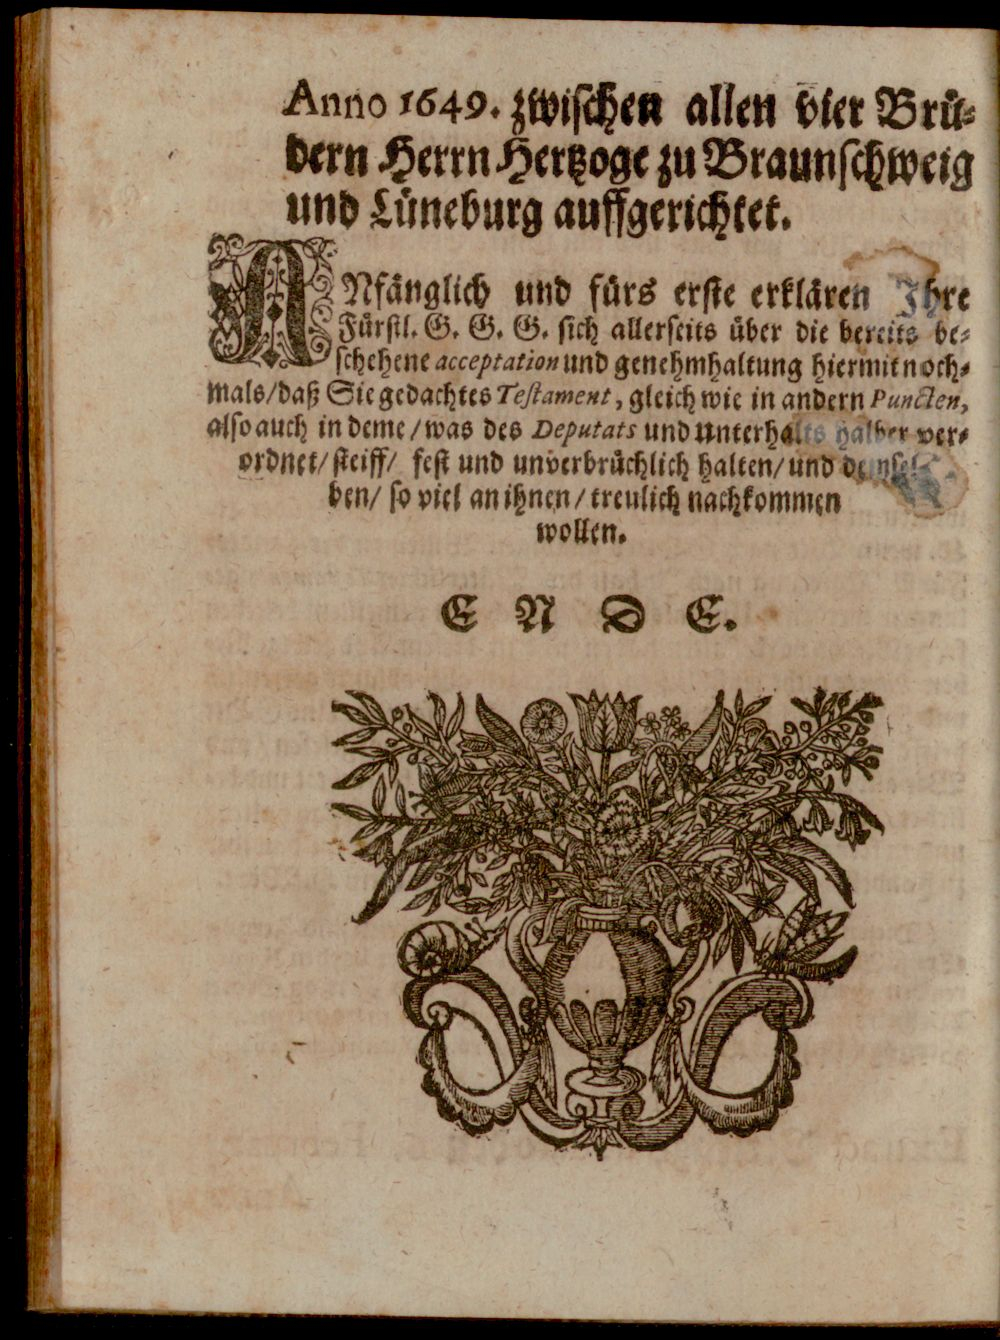 Anno 1649. zwischen allen vier Brü-
dern Herrn Hertzoge zu Braunschweig
und Lüneburg auffgerichtet.
ANfänglich und fürs erste erklären Ihre
Fürstl. G. G. G. sich allerseits über die bereits be-
schehene acceptation und genehmhaltung hiermit noch-
mals/daß Sie gedachtes Testament, gleich wie in andern Puncten,
also auch in deme/was des Deputats und Unterhalts halber ver-
ordnet/ steiff/ fest und unverbrüchlich halten/und demsel-
ben/ so viel an ihnen/treulich nachkommen
wollen.
E N D E.